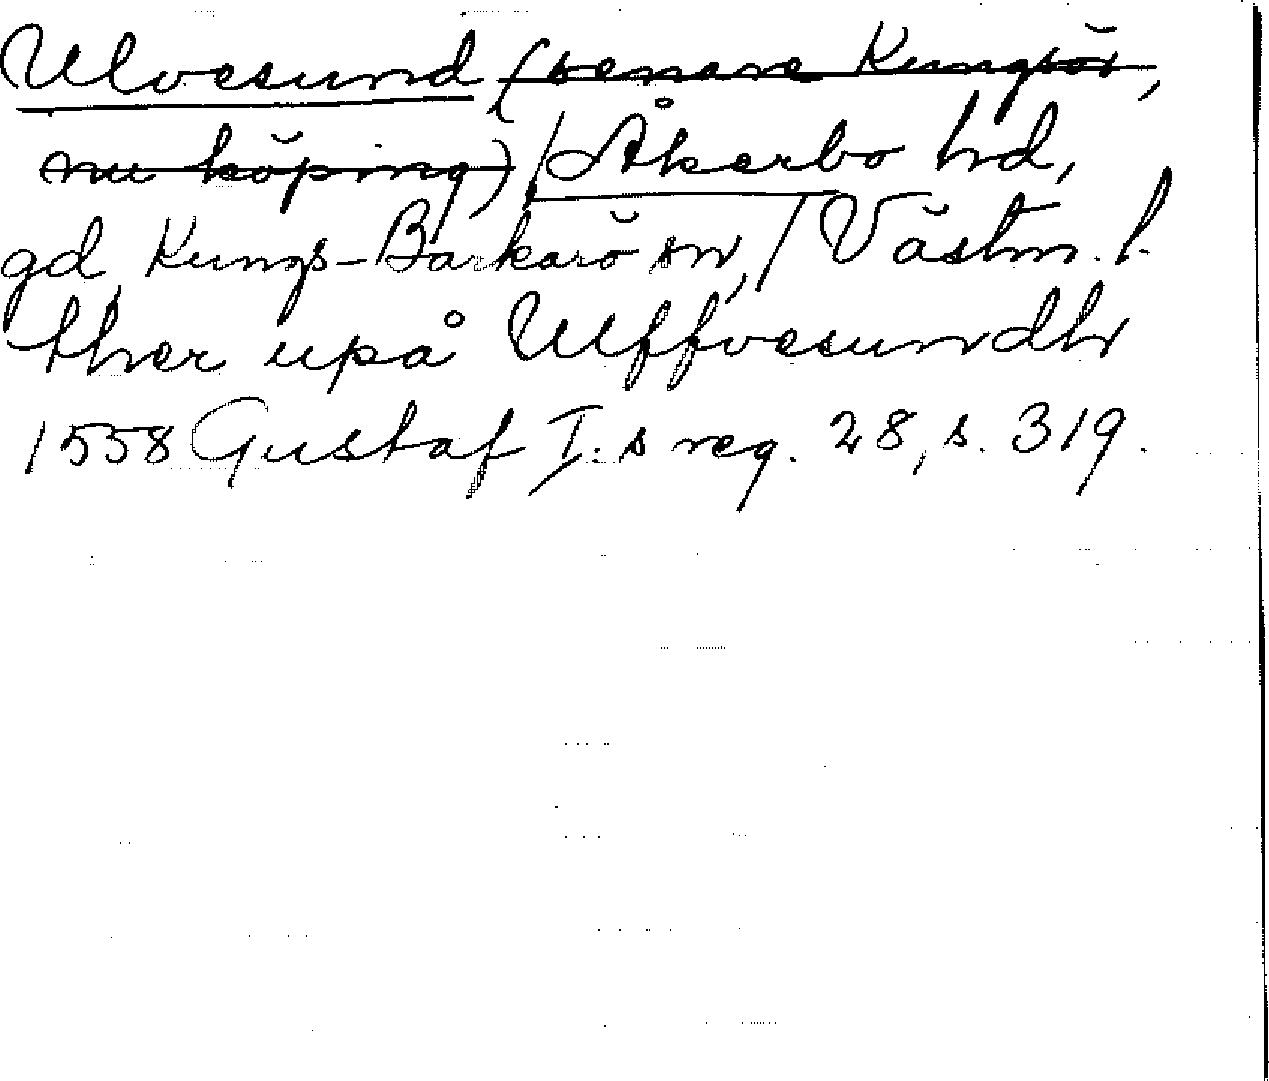 Ulvesund (senare Kungsör,
nu köping) / Åkerbo hd,
gd, Kungs-Barkarö sn, / Västm. l.
ther upå Ulffvesundh
1558 Gustaf I:s reg. 28, s. 319.